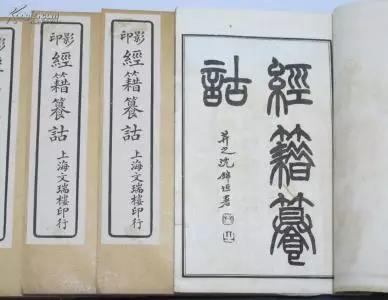 經籍籑
詁
沈錦垣署
影印
經籍籑詁
上海文瑞樓印行
影印
經籍籑詁
上海文瑞樓印行